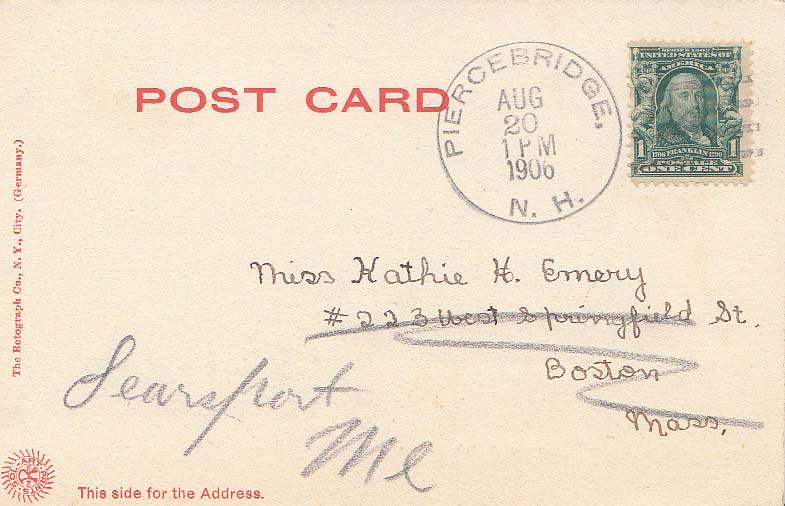 POST CARD
PIERCEBRIDGE.
AUG
20
1 PM
1906
N. H.
SERIES 1902
UNITED STATES OF
AMERICA
1 1
1706 FRANKLIN 1790
POSTAGE
ONE CENT
The Rotograph Co., N. Y., City. (Germany.)
Miss Kathie H. Emery
# 223 West Springfield St.
Boston
Mass.
Searsport
Me
This side for the Address.